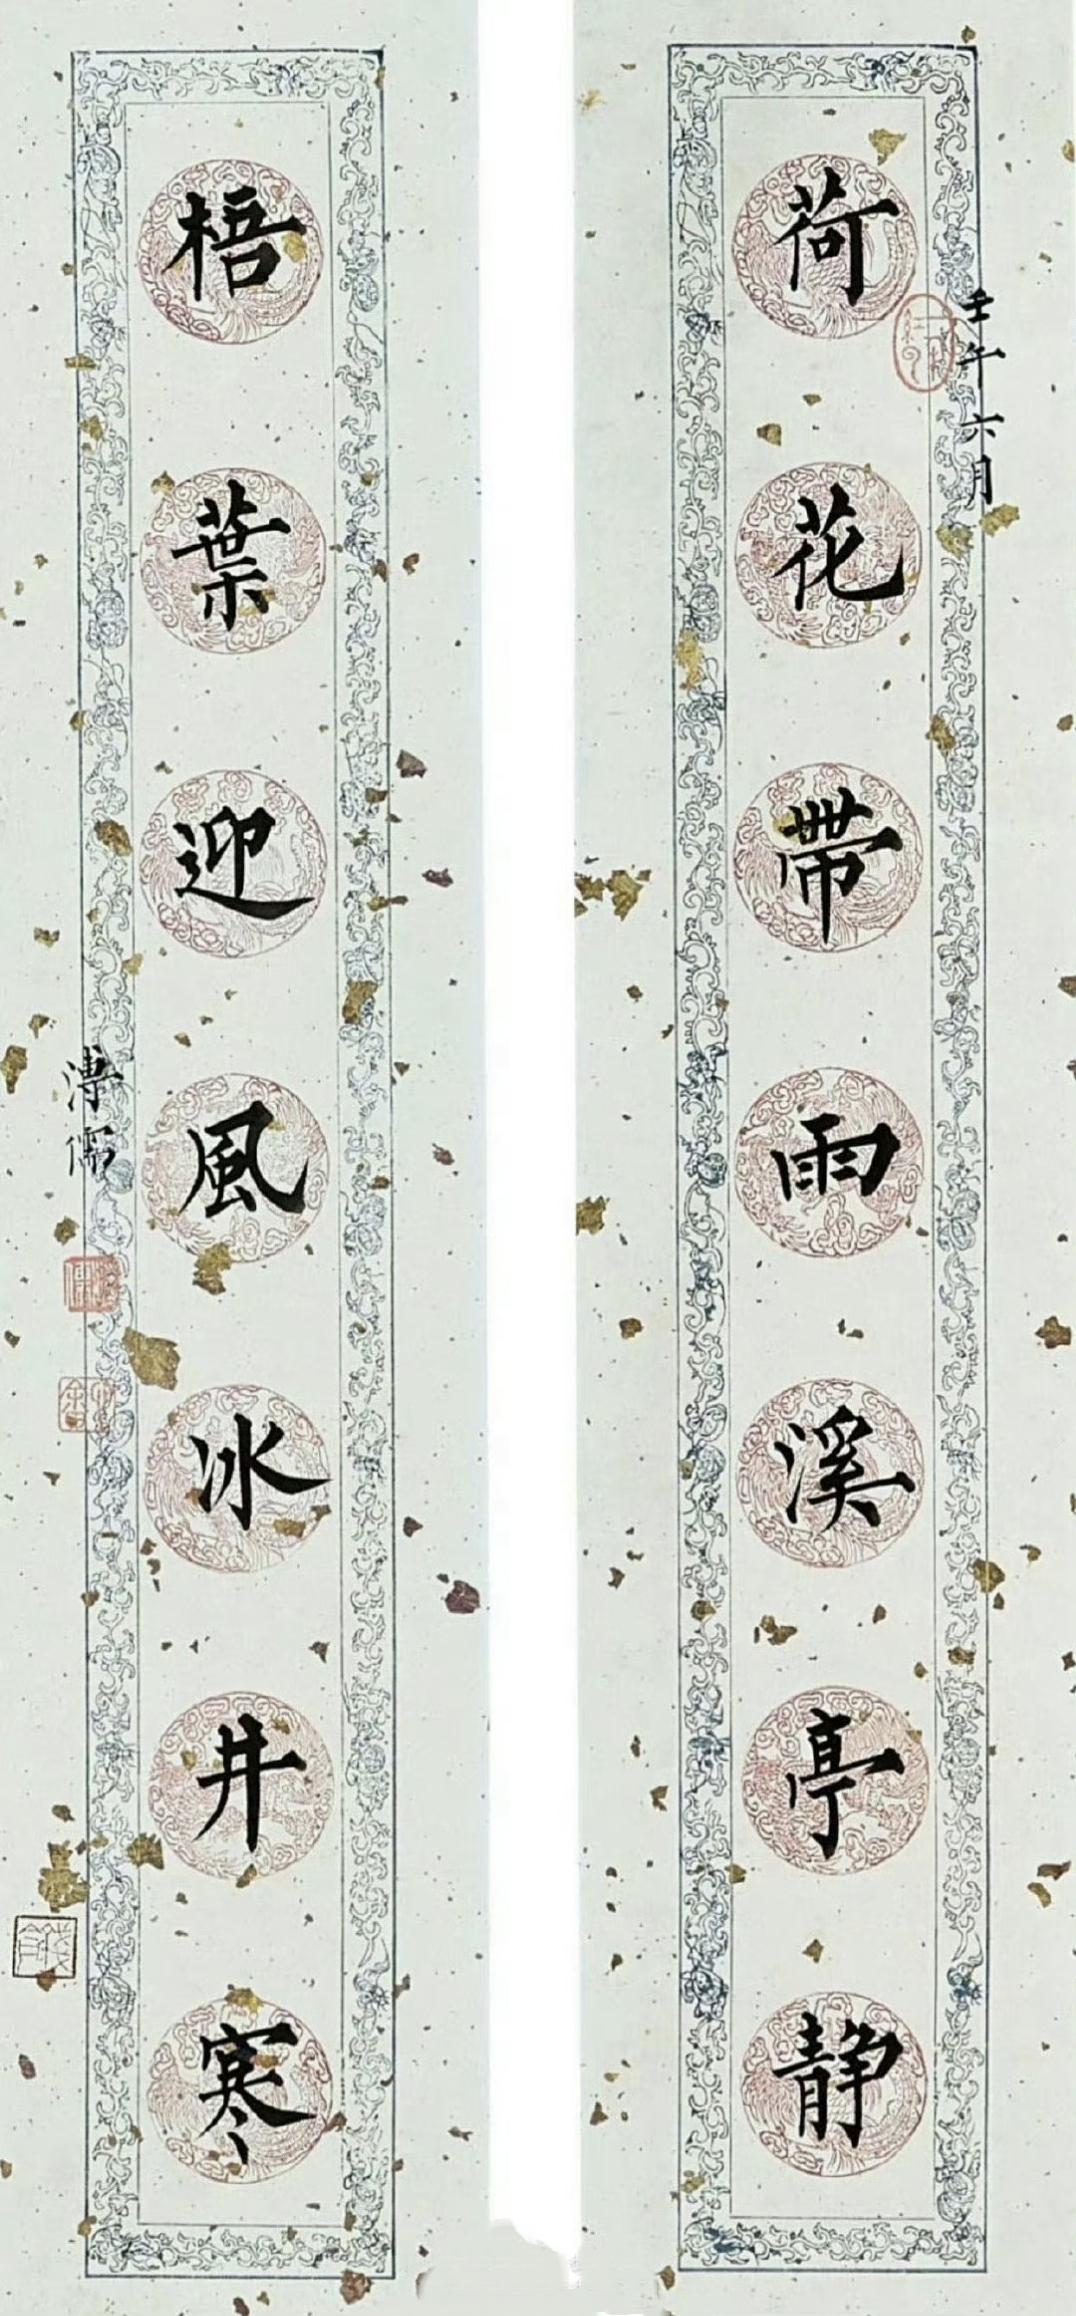 壬午六月
荷花帶雨溪亭静
梧葉迎風冰井寒
溥儒